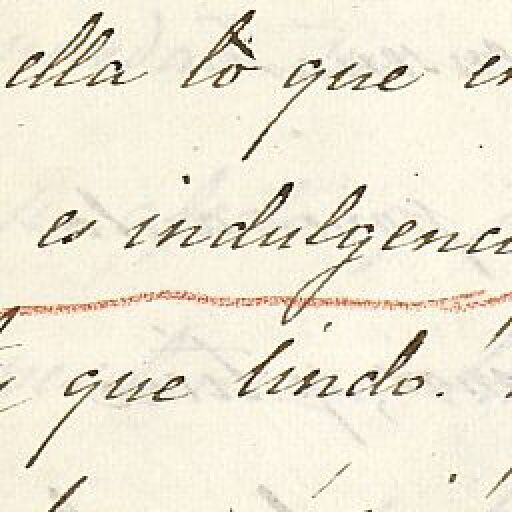 ella lo que
es indulgenc
que lindo.